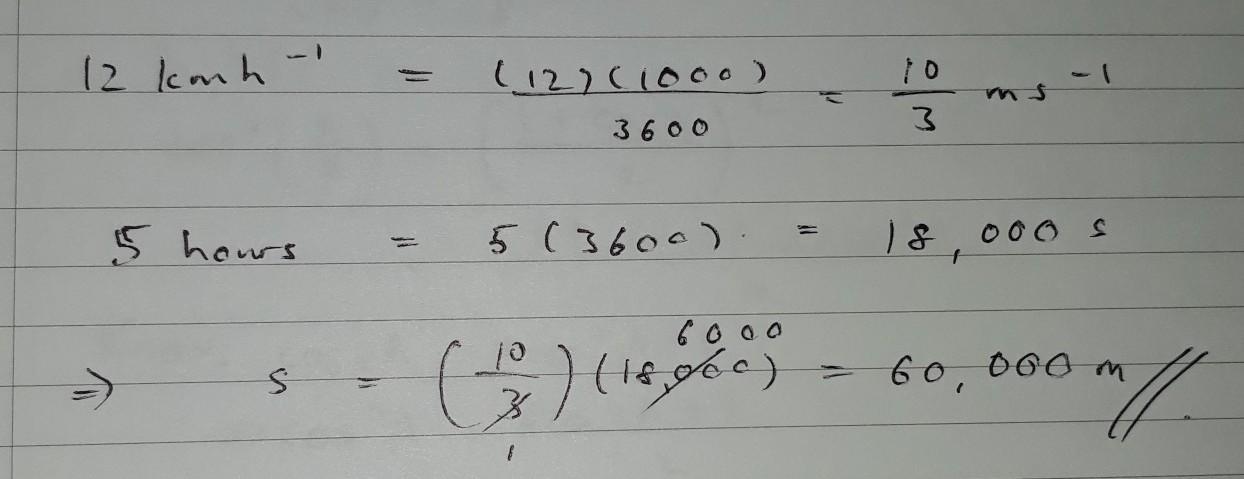 12 kmh⁻¹ = (12)(1000)/3600 = 10/3 ms⁻¹
5 hours = 5(3600). = 18,000 s
⇒ s = (10/3)(18,000) = 60,000 m //.
6000
1